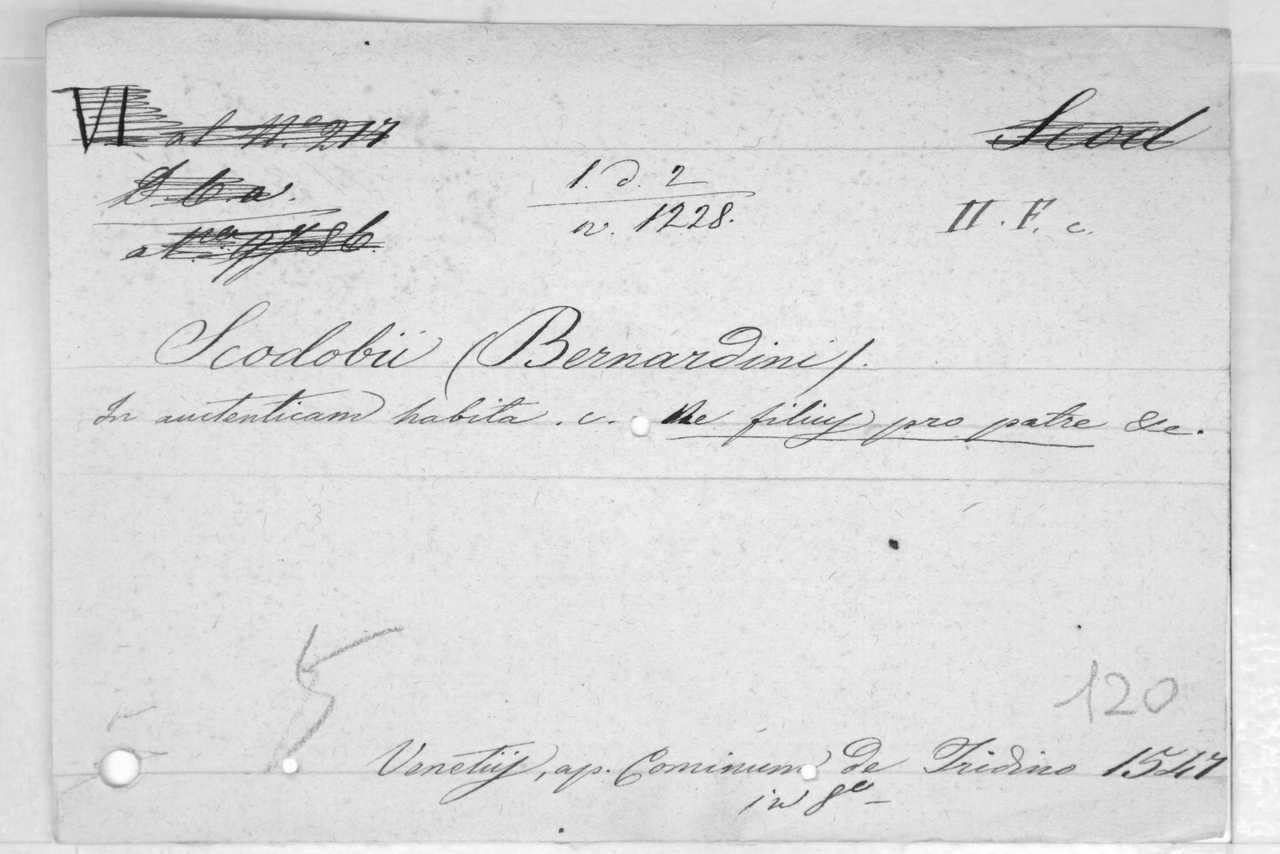 VI al N.o 217
Scod
D. b. a.
1. d. 2
n. 1228.
II. F. c.
Scodobii (Bernardini).
In auctenticam habita . c. Ne filius pro patre &c.
5
120
Venetiis, ap. Cominum de Tridino 1547
in 8o